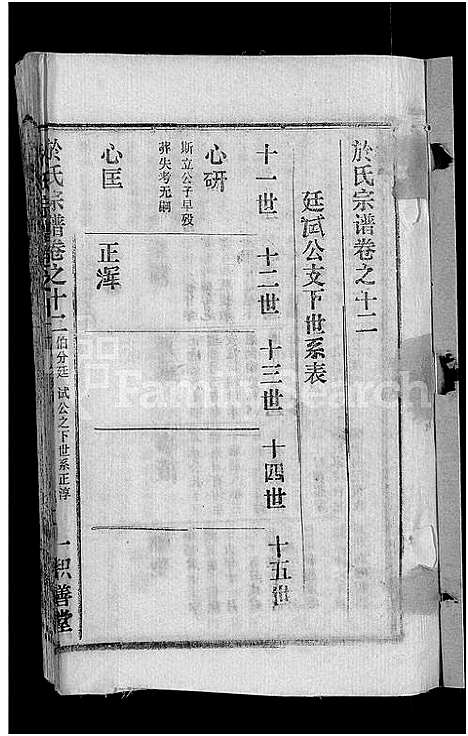 於氏宗谱卷之十二
廷试公支下世系表
十一世 十二世 十三世 十四世 十五世
心研
斯立公子早殁
葬失考无嗣
心匡 正浑
於氏宗谱卷之十二 伯分廷试公之下世系正淳 一 积善堂
FamilySearch